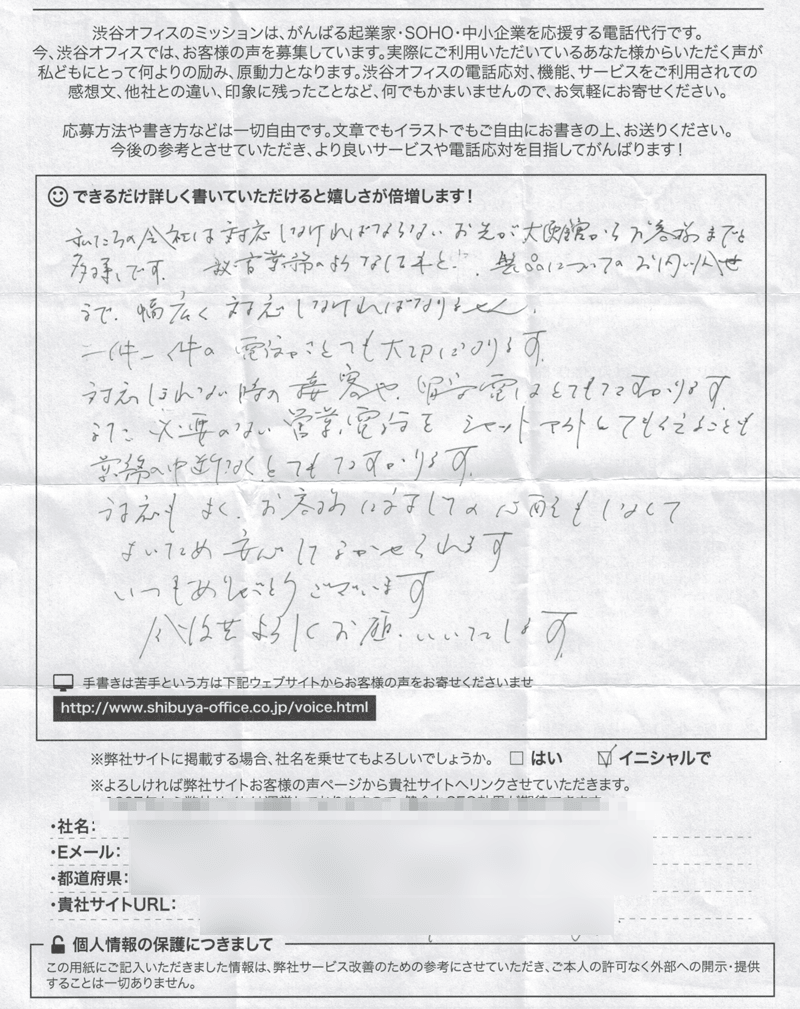 渋谷オフィスのミッションは、がんばる起業家・SOHO・中小企業を応援する電話代行です。
今、渋谷オフィスでは、お客様の声を募集しています。実際にご利用いただいているあなた様からいただく声が
私どもにとって何よりの励み、原動力となります。渋谷オフィスの電話応対、機能、サービスをご利用されての
感想文、他社との違い、印象に残ったことなど、何でもかまいませんので、お気軽にお寄せください。
応募方法や書き方などは一切自由です。文章でもイラストでもご自由にお書きの上、お送りください。
今後の参考とさせていただき、より良いサービスや電話応対を目指してがんばります！
できるだけ詳しく書いていただけると嬉しさが倍増します！
私たちの会社は対応しなければならないお先が大使館からお客様までと
多様です。 秘書業務のような 、製品についてのお問い合せ
まで、幅広く対応しなければなりません。
一件一件の電話がとても大切になります。
対応しきれない時の接客や、留守電はとてもたすかります。
また必要のない営業電話をシャットアウトしてもらえることも
業務の中断なくとてもたすかります。
対応もよく、お客様に対しての心配もしなくて
よいため安心してまかせられます
いつもありがとうございます
今後共よろしくお願いいたします
手書きは苦手という方は下記ウェブサイトからお客様の声をお寄せくださいませ
http://www.shibuya-office.co.jp/voice.html
※弊社サイトに掲載する場合、社名を乗せてもよろしいでしょうか。 □ はい ☑ イニシャルで
※よろしければ弊社サイトお客様の声ページから貴社サイトへリンクさせていただきます。
・社名：
・Eメール：
・都道府県：
・貴社サイトURL：
個人情報の保護につきまして
この用紙にご記入いただきました情報は、弊社サービス改善のための参考にさせていただき、ご本人の許可なく外部への開示・提供
することは一切ありません。